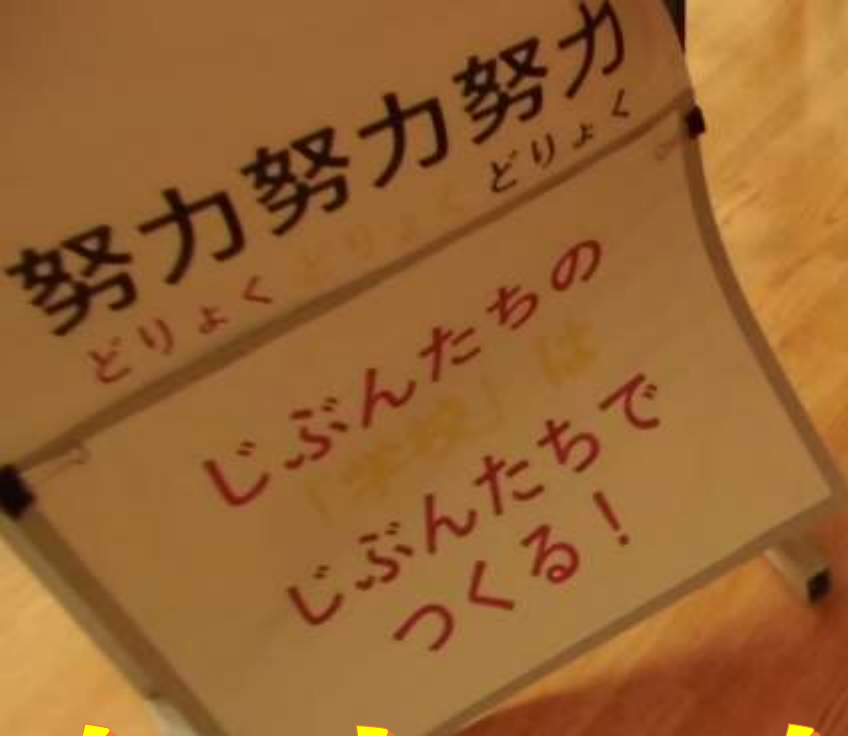 努力努力努力
どりょく どりょく どりょく
じぶんたちの
「学校」は
じぶんたちで
つくる!